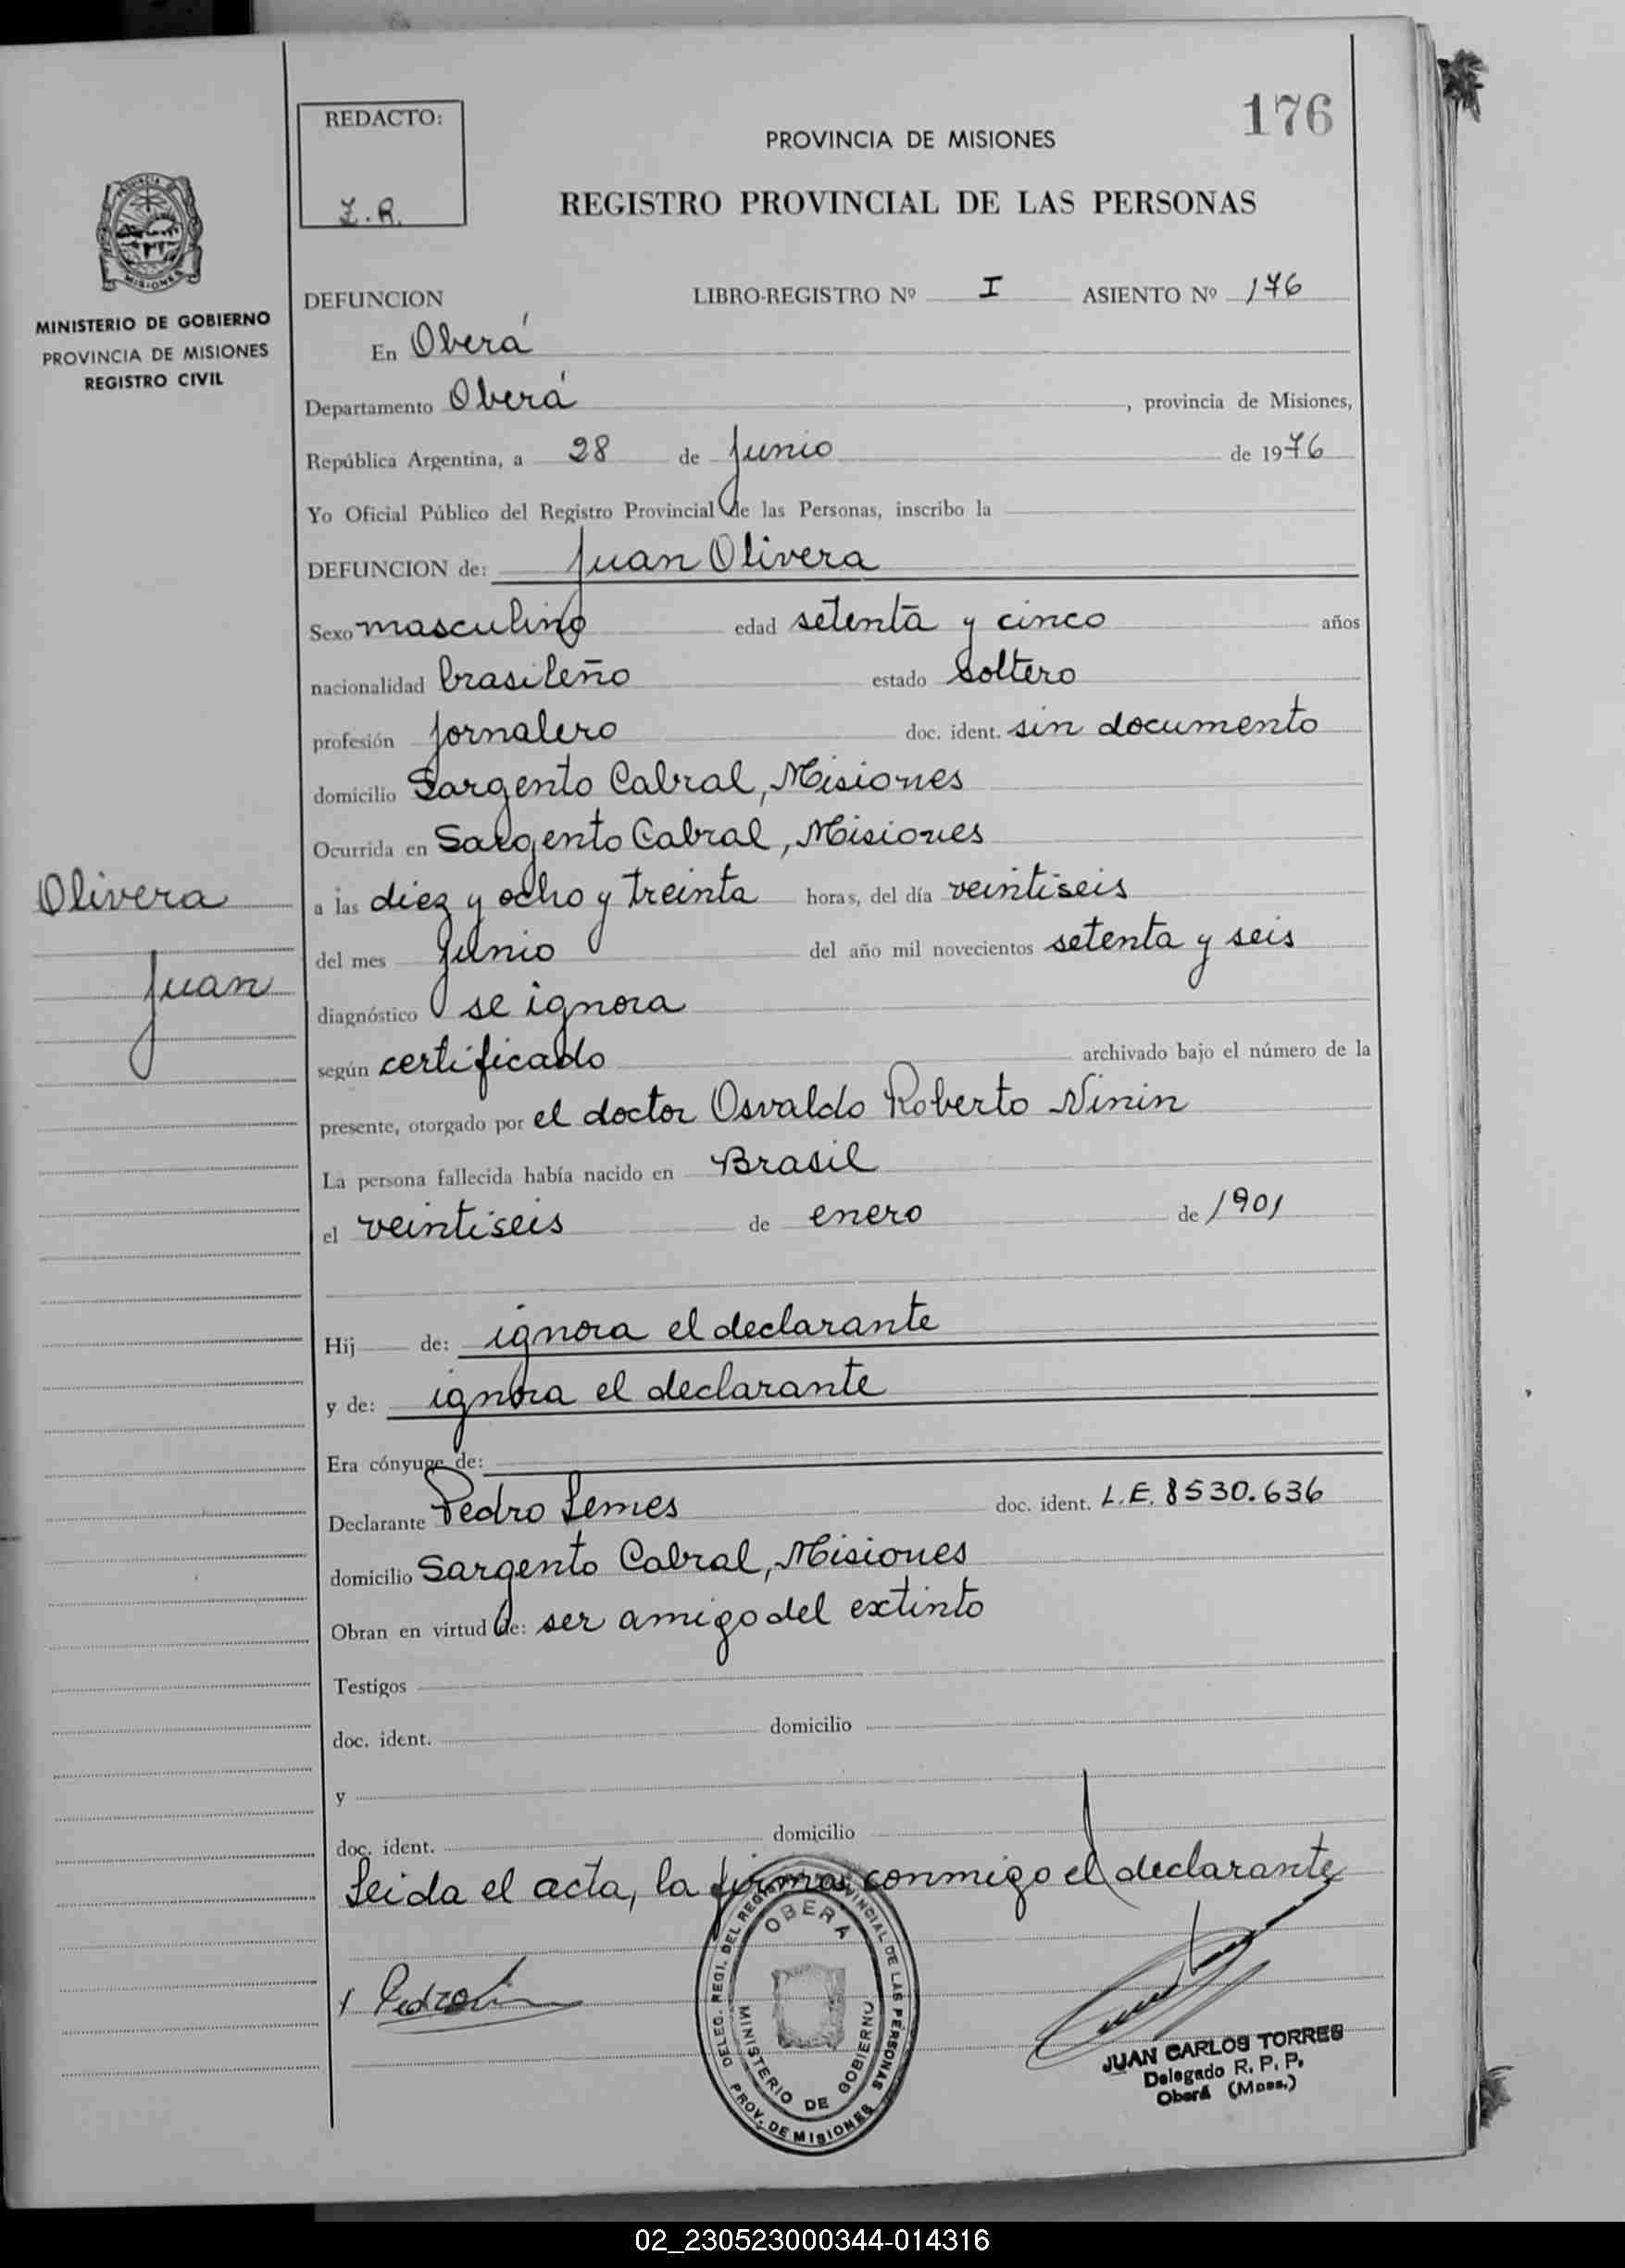 176
REDACTO:
Z.R.
PROVINCIA DE MISIONES
REGISTRO PROVINCIAL DE LAS PERSONAS
PROVINCIA DE
MISIONES
MINISTERIO DE GOBIERNO
PROVINCIA DE MISIONES
REGISTRO CIVIL
DEFUNCION LIBRO-REGISTRO Nº I ASIENTO Nº 176
En Oberá
Departamento Oberá, provincia de Misiones,
República Argentina, a 28 de Junio de 1976
Yo Oficial Público del Registro Provincial de las Personas, inscribo la
DEFUNCION de: Juan Olivera
Sexo masculino edad setenta y cinco años
nacionalidad brasileño estado soltero
profesión jornalero doc. ident. sin documento
domicilio Sargento Cabral, Misiones
Ocurrida en Sargento Cabral, Misiones
Olivera
Juan
a las diez y ocho y treinta horas, del día veintiseis
del mes junio del año mil novecientos setenta y seis
diagnóstico se ignora
según certificado archivado bajo el número de la
presente, otorgado por el doctor Osvaldo Roberto Ninin
La persona fallecida había nacido en Brasil
el veintiseis de enero de 1901
Hij de: ignora el declarante
y de: ignora el declarante
Era cónyuge de:
Declarante Pedro Lemes doc. ident. L.E. 8530.636
domicilio Sargento Cabral, Misiones
Obran en virtud de: ser amigo del extinto
Testigos
doc. ident. domicilio
y
doc. ident. domicilio
Leida el acta, la firma conmigo el declarante
x Pedro
DELEG. REGI. DEL REGISTRO PROVINCIAL DE LAS PERSONAS
OBERA
MINISTERIO DE GOBIERNO
PROV. DE MISIONES
JUAN CARLOS TORRES
Delegado R. P. P.
Oberá (Mnes.)
02_230523000344-014316